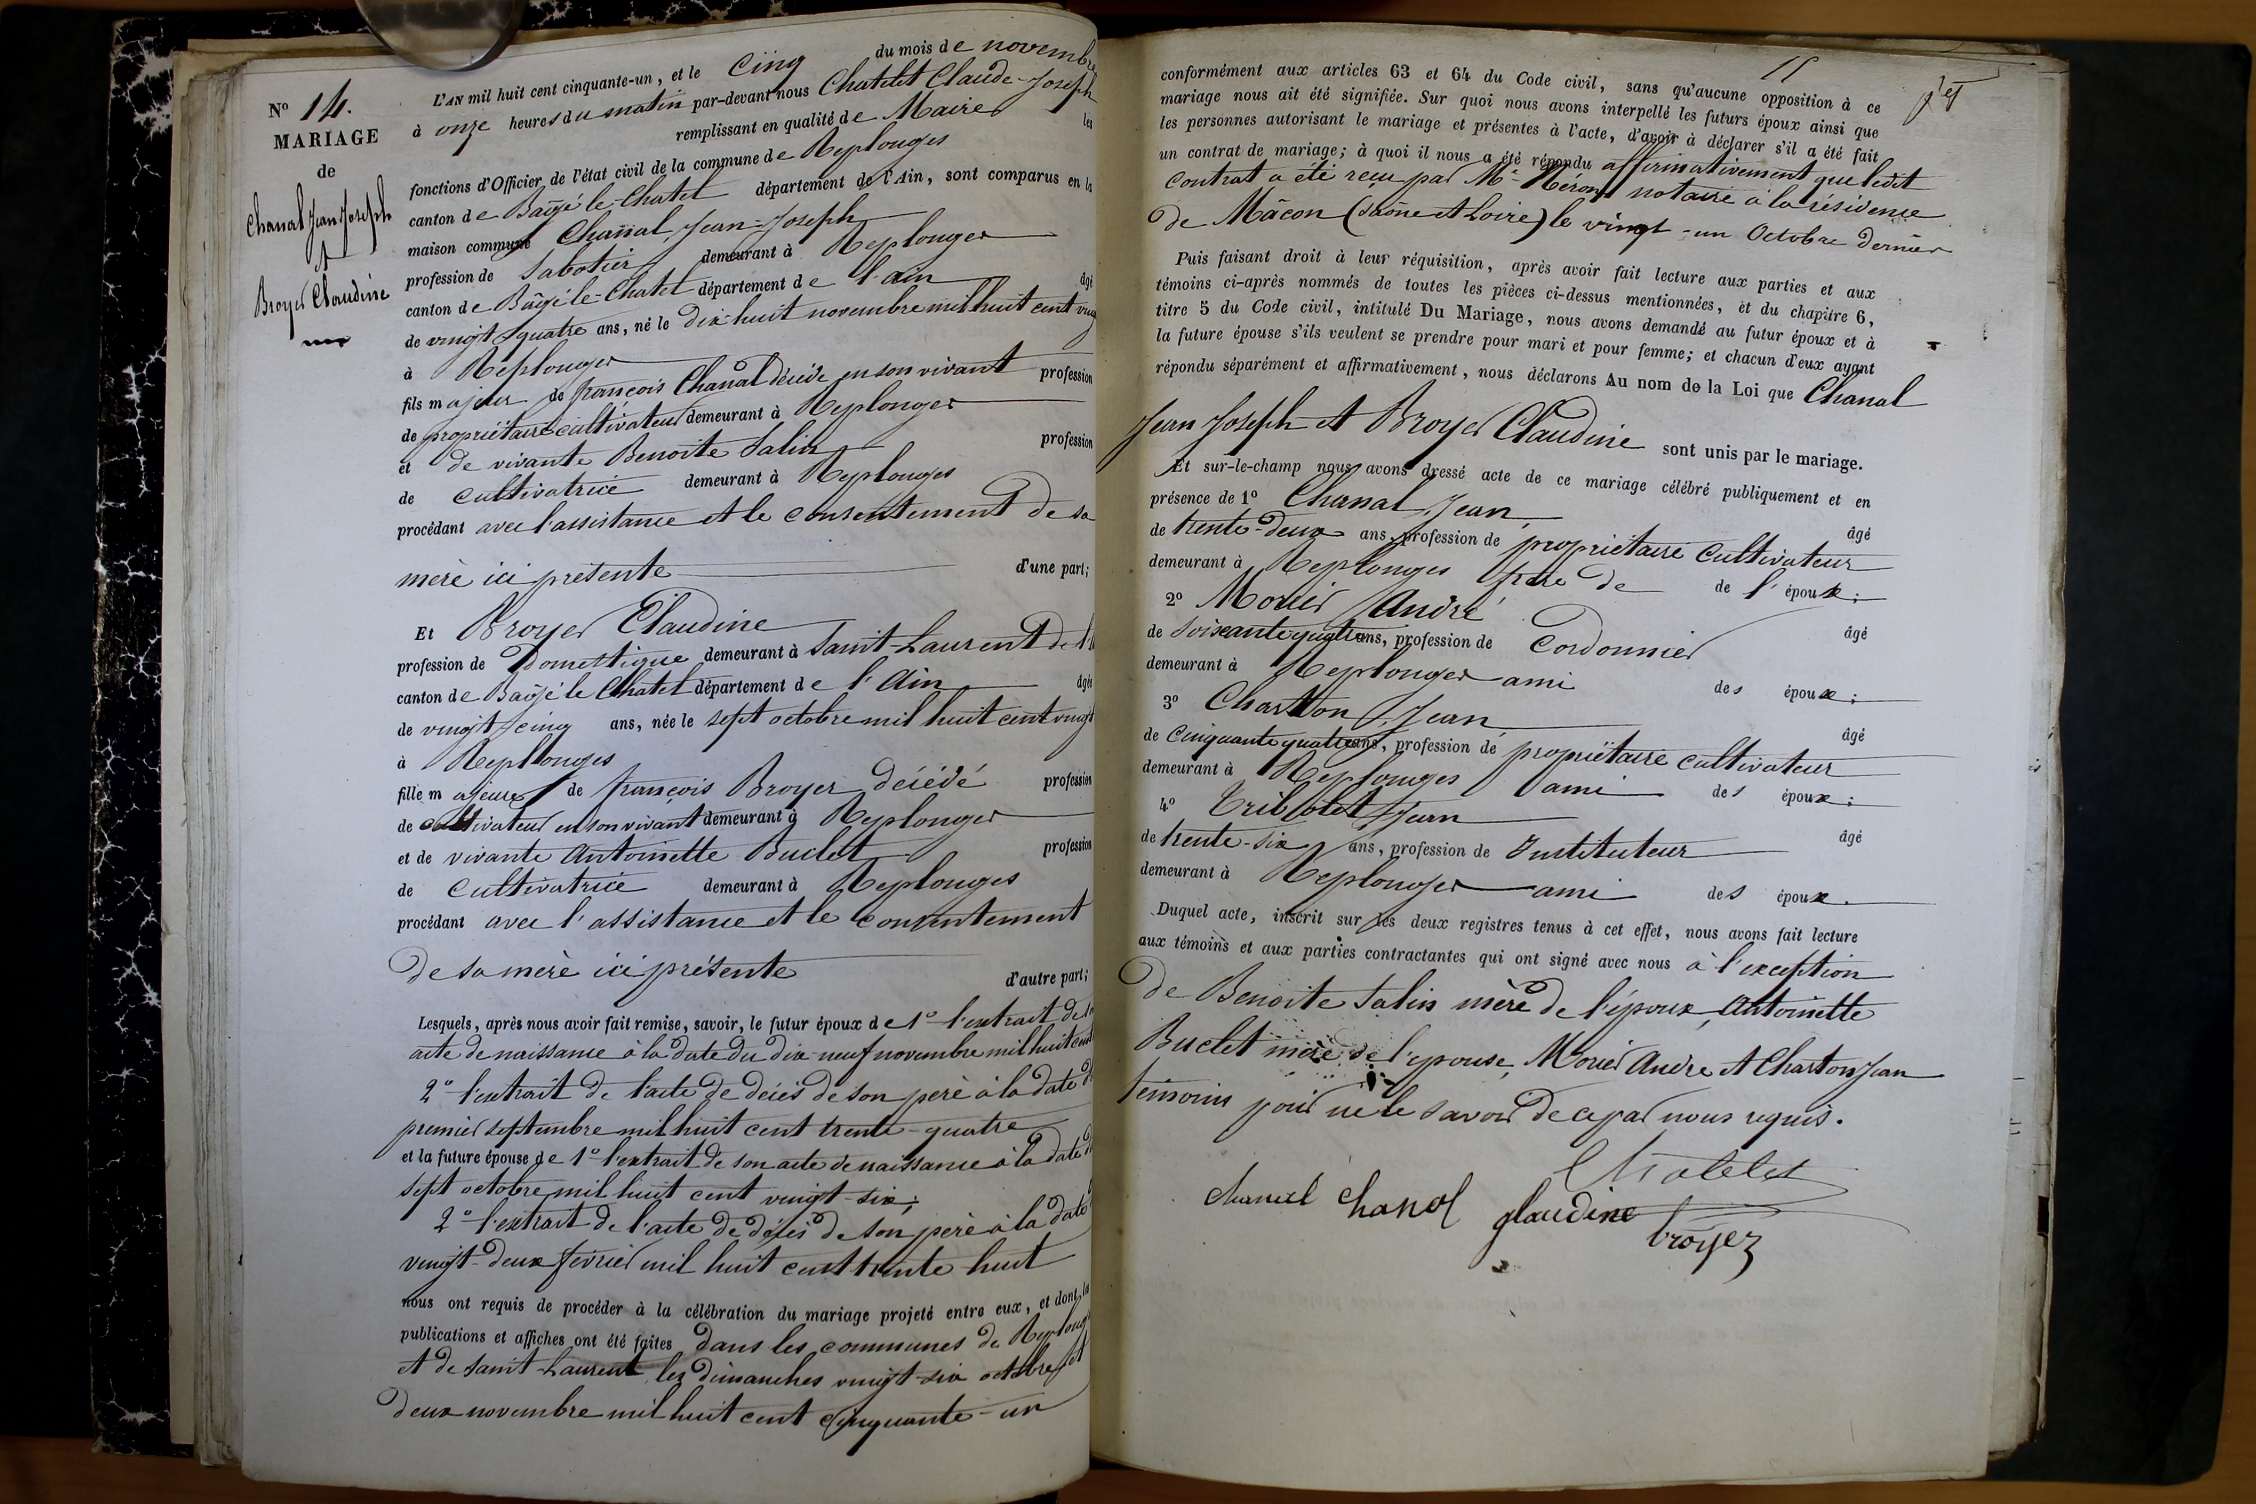 N° 14.
MARIAGE
de
Chanal Jean Joseph
et
Broyer Claudine
L'AN mil huit cent cinquante-un, et le Cinq du mois de novembre
à onze heures du matin par-devant nous Chatelet Claude-Joseph
remplissant en qualité de Maire les
fonctions d'Officier de l'état civil de la commune de Replonges
canton de Bâgé-le-Chatel département de l'Ain, sont comparus en la
maison commune Chanal Jean-Joseph
profession de Sabotier demeurant à Replonges
canton de Bâgé-le-Chatel département de l'ain âgé
de vingt quatre ans, né le dix huit novembre mil huit cent vingt
à Replonges
fils majeur de françois Chanal décédé en son vivant profession
de propriétaire cultivateur demeurant à Replonges
et de vivante Benoite Salin profession
de cultivatrice demeurant à Replonges
procédant avec l'assistance et le consentement de sa
mère ici présente d'une part;
Et Broyer Claudine
profession de Domestique demeurant à Saint-Laurent de l'
canton de Bâgé le Chatel département de l'Ain âgée
de vingt cinq ans, née le sept octobre mil huit cent vingt
à Replonges
fille majeure de françois Broyer décédé profession
de cultivateur en son vivant demeurant à Replonges
et de vivante Antoinette Buclet profession
de cultivatrice demeurant à Replonges
procédant avec l'assistance et le consentement
de sa mère ici présente d'autre part;
Lesquels, après nous avoir fait remise, savoir, le futur époux de 1° l'extrait de son
acte de naissance à la date du dix-neuf novembre mil huit cent
2° l'extrait de l'acte de décès de son père à la date du
premier septembre mil huit cent trente-quatre
et la future épouse de 1° l'extrait de son acte de naissance à la date du
sept octobre mil huit cent vingt-six;
2° l'extrait de l'acte de décès de son père à la date
vingt-deux février mil huit cent trente huit
nous ont requis de procéder à la célébration du mariage projeté entre eux, et dont les
publications et affiches ont été faites dans les communes de Replonges
et de Saint-Laurent les dimanches vingt-six octobre et
deux novembre mil huit cent cinquante-un
conformément aux articles 63 et 64 du Code civil, sans qu'aucune opposition à ce
mariage nous ait été signifiée. Sur quoi nous avons interpellé les futurs époux ainsi que
les personnes autorisant le mariage et présentes à l'acte, d'avoir à déclarer s'il a été fait
un contrat de mariage; à quoi il nous a été répondu affirmativement que ledit
contrat a été reçu par Me notaire à la résidence
de Mâcon (Saône et Loire) le vingt-un Octobre dernier
Puis faisant droit à leur réquisition, après avoir fait lecture aux parties et aux
témoins ci-après nommés de toutes les pièces ci-dessus mentionnées, et du chapitre 6,
titre 5 du Code civil, intitulé Du Mariage, nous avons demandé au futur époux et à
la future épouse s'ils veulent se prendre pour mari et pour femme; et chacun d'eux ayant
répondu séparément et affirmativement, nous déclarons Au nom de la Loi que Chanal
Jean Joseph et Broyer Claudine sont unis par le mariage.
Et sur-le-champ nous avons dressé acte de ce mariage célébré publiquement et en
présence de 1° Chanal Jean âgé
de trente-deux ans, profession de propriétaire cultivateur
demeurant à Replonges frère de de l'époux;
2° Morier André âgé
de soixante quatre ans, profession de Cordonnier
demeurant à Replonges ami des époux;
3° Charton Jean âgé
de cinquante quatre ans, profession de propriétaire cultivateur
demeurant à Replonges ami des époux;
4° Tribolet Jean âgé
de trente-six ans, profession de Instituteur
demeurant à Replonges ami des époux.
Duquel acte, inscrit sur les deux registres tenus à cet effet, nous avons fait lecture
aux témoins et aux parties contractantes qui ont signé avec nous à l'exception
de Benoite Salin mère de l'époux, Antoinette
Buclet mère de l'épouse, Morier André et Charton Jean
témoins pour ne le savoir de ce par nous requis.
Chatelet
chanal chanol glaudine
broyez